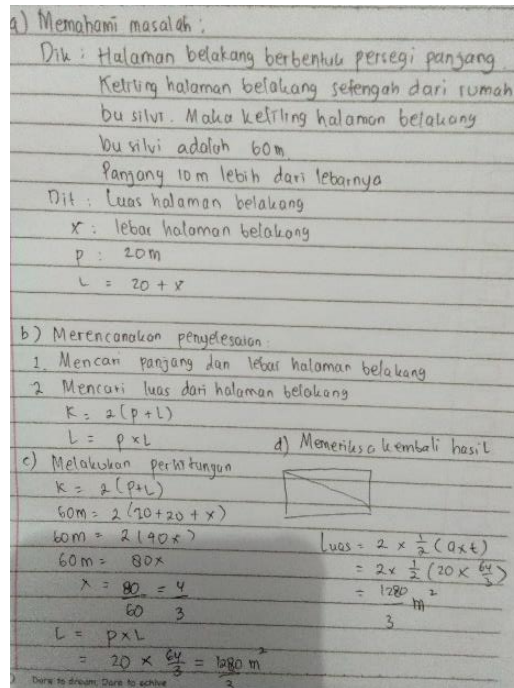 a) Memahami masalah :
Dik : Halaman belakang berbentuk persegi panjang.
Keliling halaman belakang setengah dari rumah
bu silvi. Maka keliling halaman belakang
bu silvi adalah 60m.
Panjang 10 m lebih dari lebarnya
Dit : Luas halaman belakang
x : lebar halaman belakang
p : 20m
L = 20 + x
b) Merencanakan penyelesaian :
1. Mencari panjang dan lebar halaman belakang
2 Mencari luas dari halaman belakang
K = 2 (p + L)
L = p x L
c) Melakukan perhitungan
K = 2 (P+L)
60m = 2 (20+20 + x)
60m = 2 (40x)
60m = 80x
x = 80/60 = 4/3
L = p x L
= 20 x 64/3 = 1280/3 m²
d) Memeriksa kembali hasil
Luas = 2 x 1/2 (a x t)
= 2 x 1/2 (20 x 64/3)
= 1280/3 m²
Dare to dream, Dare to achive